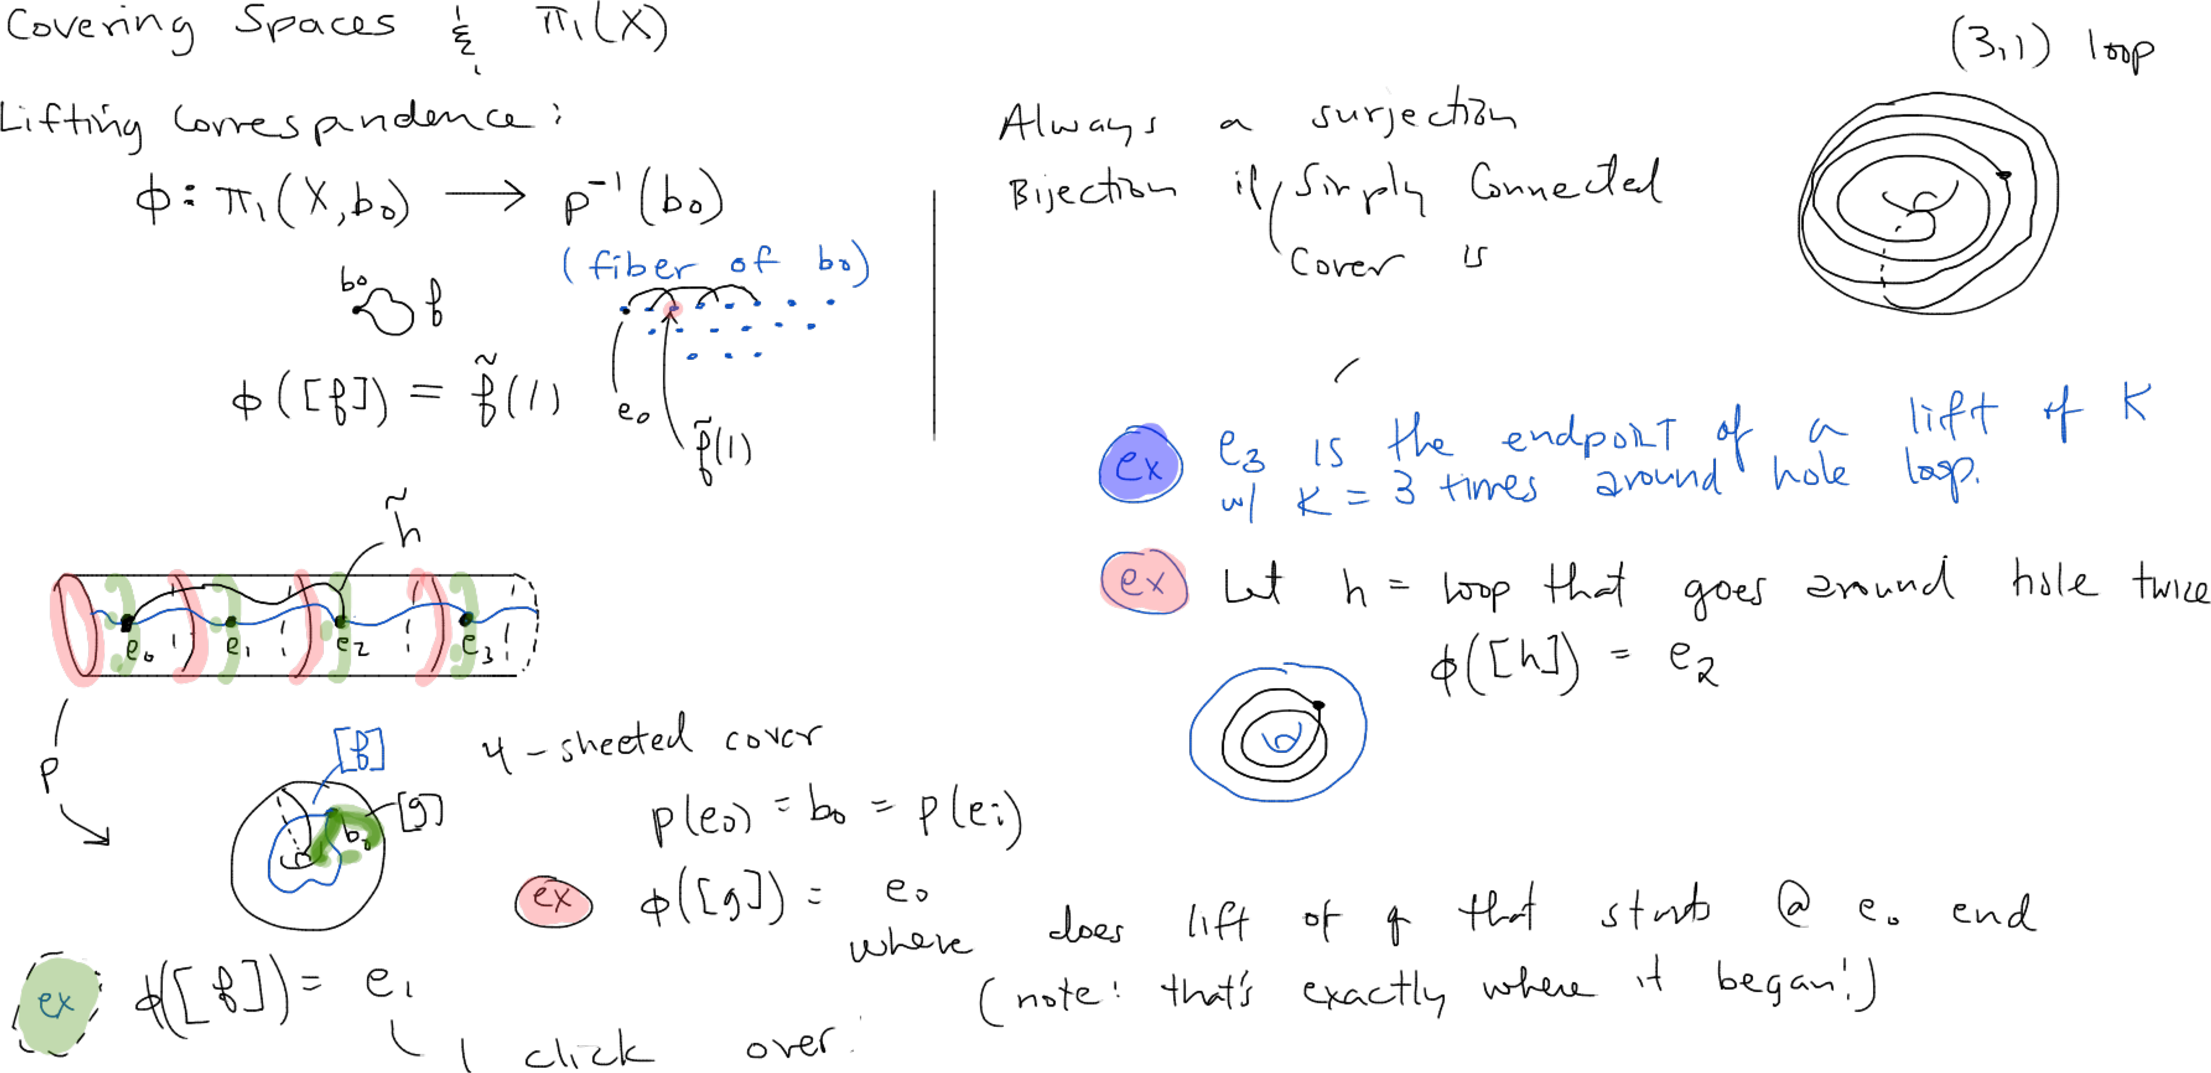 Covering Spaces & π₁(X)
Lifting Correspondence:
ϕ: π₁(X, b₀) ⟶ p⁻¹(b₀)
(fiber of b₀)
b₀ f
ϕ([f]) = f̃(1)
e₀
f̃(1)
Always a surjection
Bijection if Simply Connected
Cover is
(3,1) loop
ex e₃ is the endpoint of a lift of K
w/ K = 3 times around hole loop.
ex Let h = loop that goes around hole twice
ϕ([h]) = e₂
h̃
e₀ e₁ e₂ e₃
p
[f]
[g]
b₀
4-sheeted cover
p(e₀) = b₀ = p(eᵢ)
ex ϕ([g]) = e₀
where does lift of g that starts @ e₀ end
(note: that's exactly where it began!)
ex ϕ([f]) = e₁
1 click over.